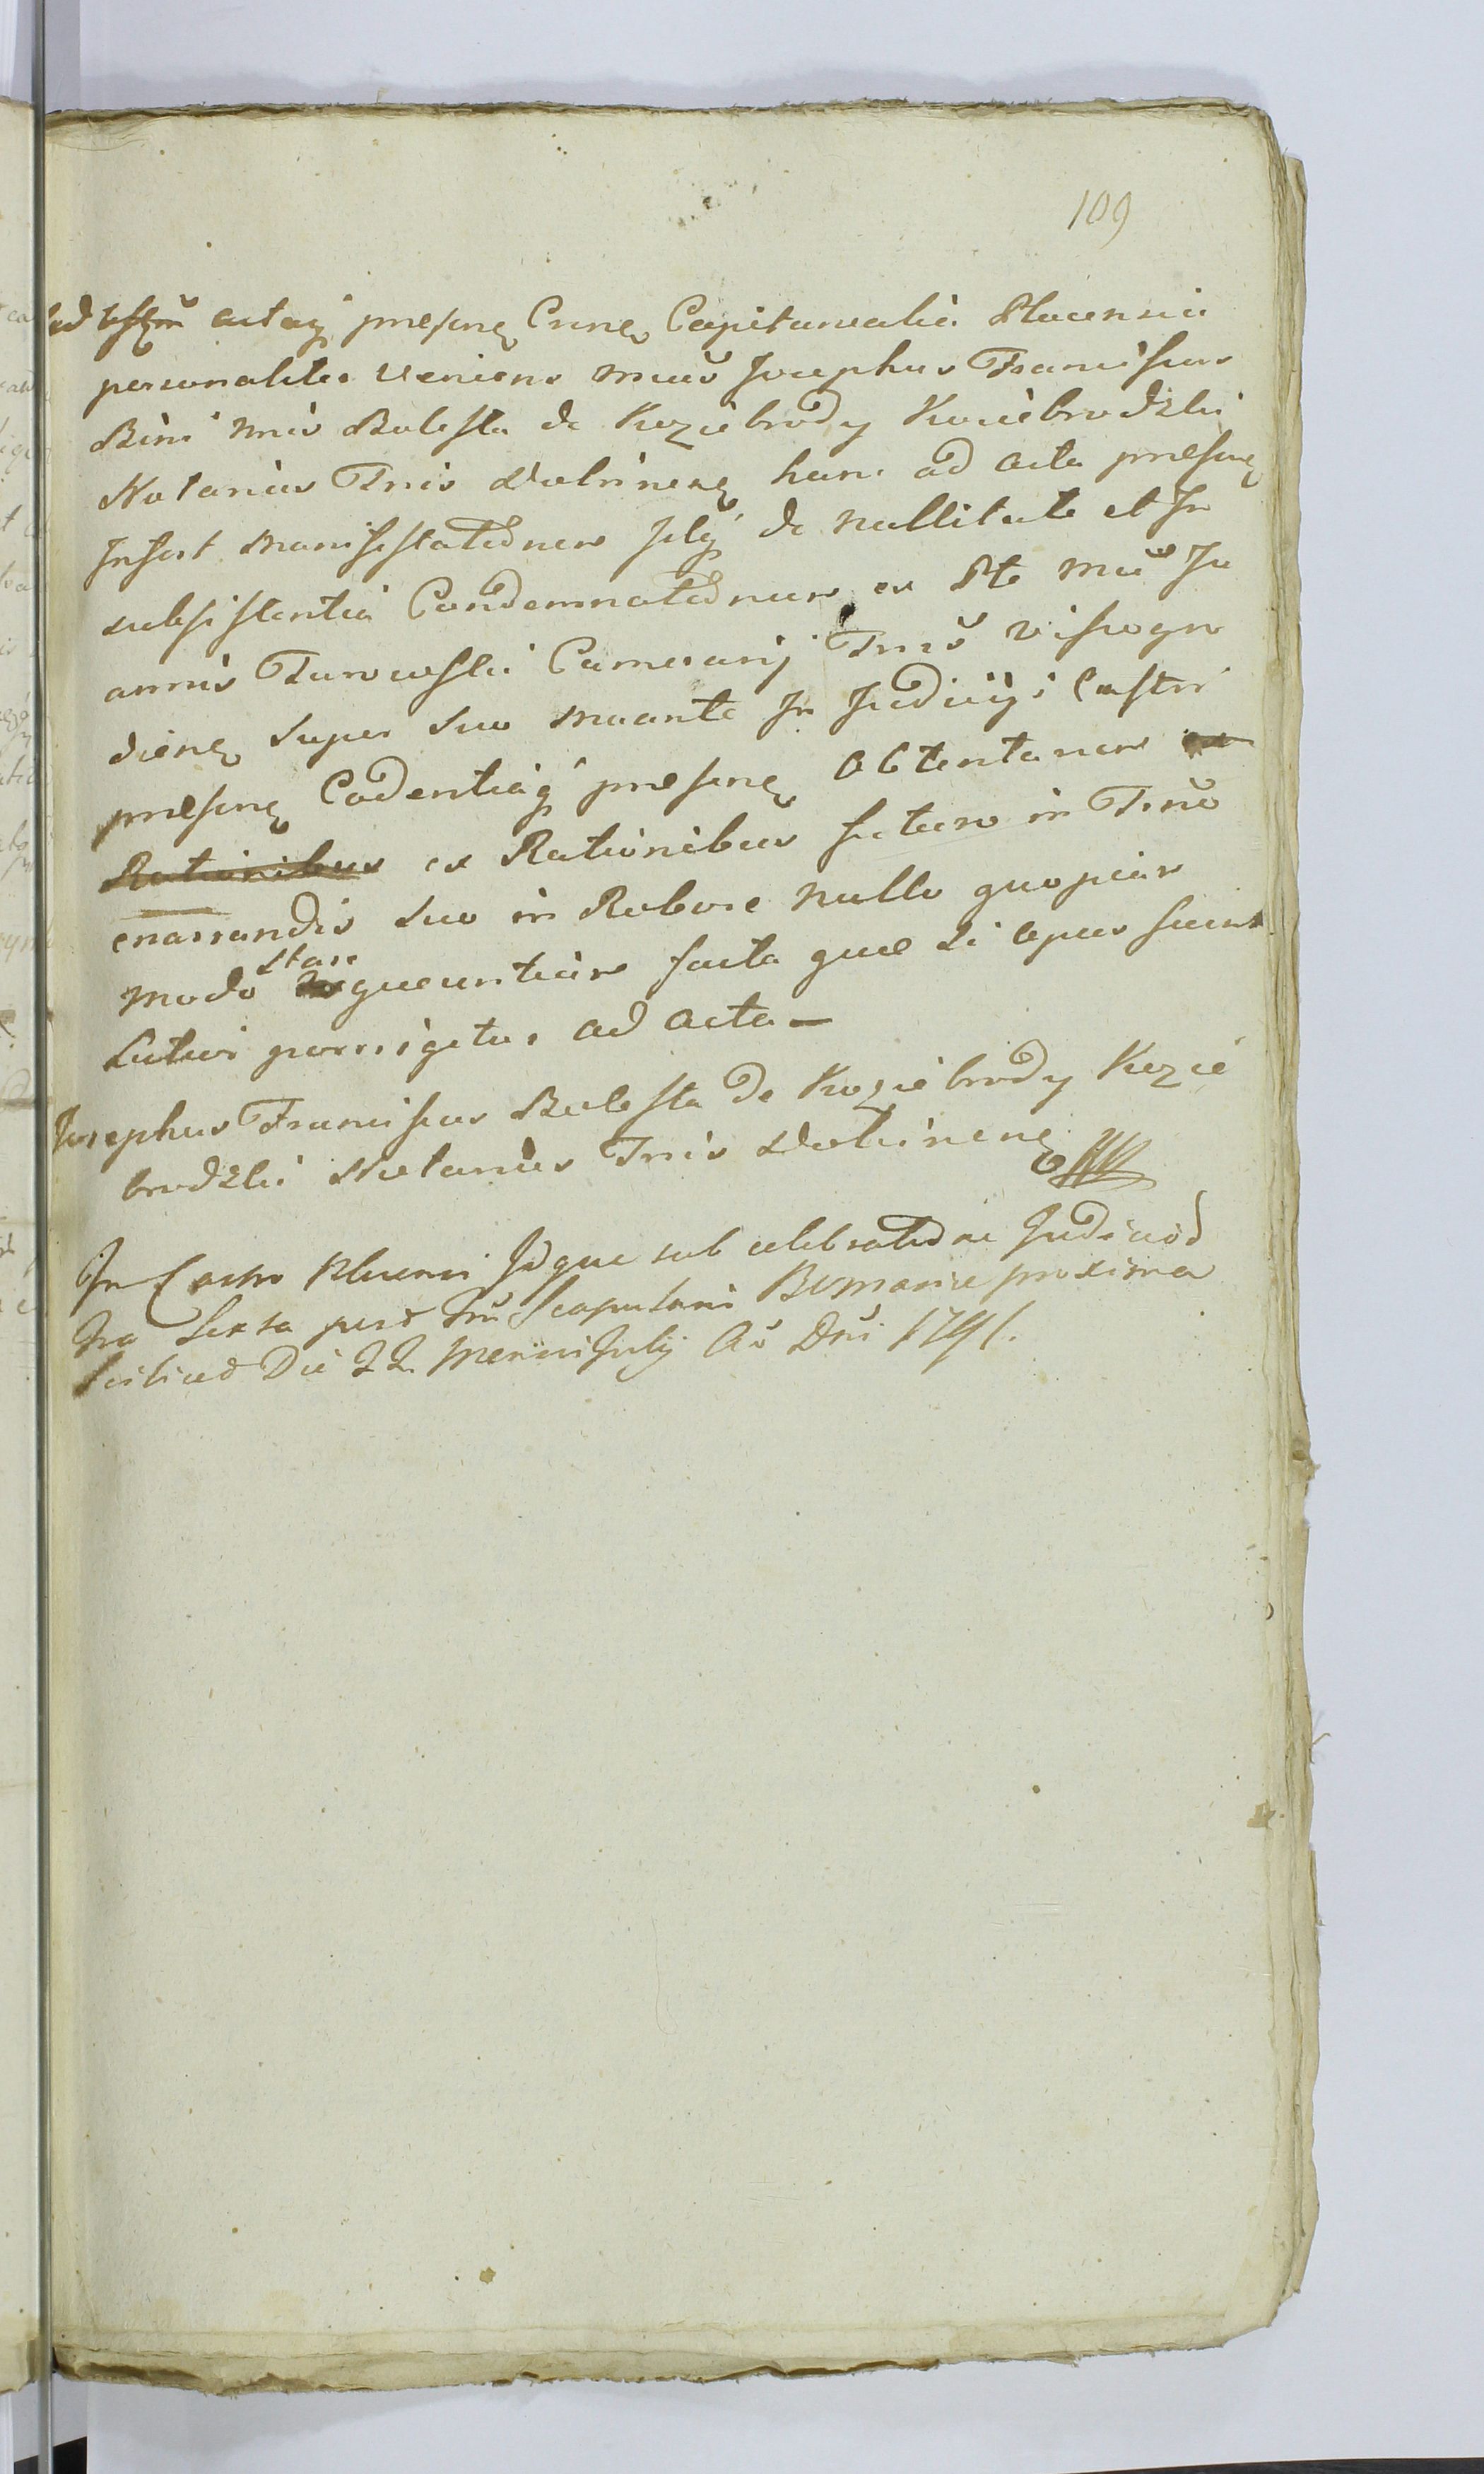 109
Ad actaq presenę Crnę Capitanealia Plocensia
personaliter veniens Mnus Josephus Franciscus
Bini mnis Bolesta de Koziebrody Koziebrodzki
Notarius Trris Wolinenę hanc ad acta presenę
Infert manifestatõnem de nullitate et In
subsistentia Condemnatõnum ex Pte Mn Jo
annis Turowski Camerarij Trris Wissogro
dienę super suo manente In Judicijs Castri
presenę Cadentiaq presenę obtentarum ex
Rationibus ex Rationibus futuro in Trno
enarrandis suo in Robore nullo quopiam
modo stare nequeuntium facta quæ si opus fuerit
Latius porrigetur ad acta —
Josephus Franciscus Bolesta de Koziebrody Kozie
brodzki Notarius Trris Wolinenę
In Castro Plocensi Idque sub celebratõne Judiciõ
Fra Sexta post Scapularis B V Mariæ proxima
scilicet Die 22 Mensis Julij Aõ Dni 1791.